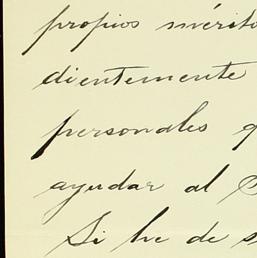 propios mérito
dientemente
personales q
ayudar al S
Si he de s